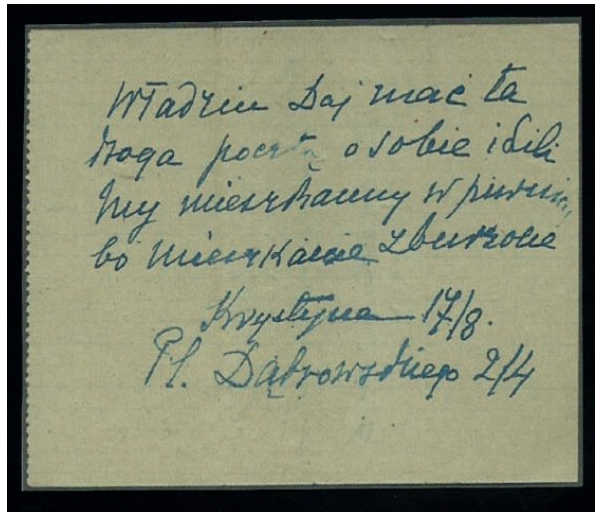 Władziu Daj znać tą
drogą pocztą o sobie i Lili
my mieszkamy w piwnicy
bo mieszkanie zburzone
Krystyna 17/8.
Pl. Dąbrowskiego 2/4